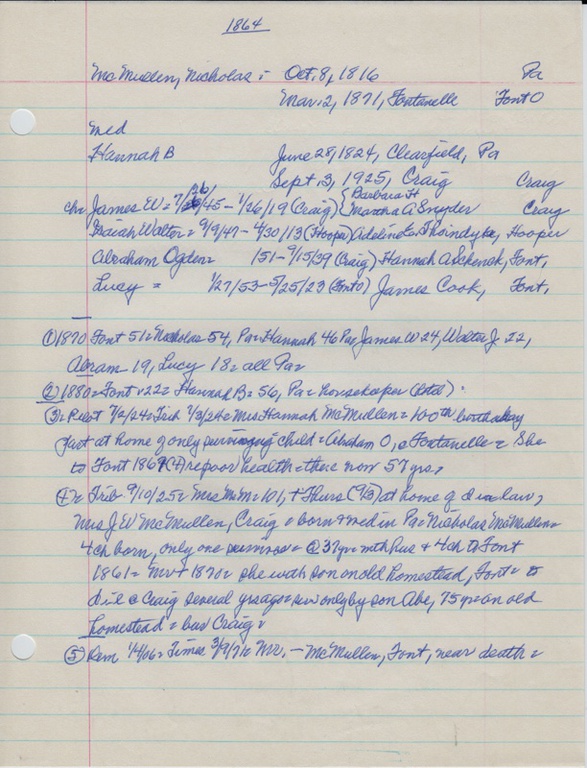 1864
McMullen, Nicholas = Oct. 8, 1816 Pa
Mar. 2, 1871, Fontanelle Font O
med
Hannah B June 28, 1824, Clearfield, Pa
Sept. 3, 1925, Craig Craig
26
ch= James EW = 7/ /45 - 1/26/19 (Craig) { Barbara H
Martha A Snyder Craig
Isaiah Walter = 9/9/47 - 4/30/13 (Hooper) Adeline E. Hooper
Abraham Ogden= 151 - 9/15/39 (Craig) Hannah A Schenck, Font,
Lucy = 1/27/53 - 5/25/23 (Font O) James Cook, Font,
① 1870 Font 51 = Nicholas 54, Pa = Hannah 46 Pa, James W 24, Walter J. 22,
Abram 19, Lucy 18 = all Pa=
② 1880 = Font 22 = Hannah B = 56, Pa = housekeeper
③ = Pilot 7/2/24 = Trib 7/3/24 = Mrs Hannah McMullen = 100th birthday
past at home of only surviving child = Abraham O, Fontanelle = She
to Font 1869 poor health = there now 57 yrs,
④ = Trib 9/10/25 = Mrs McM = 101, + Thurs (9/3) at home of d in law,
Mrs J W McMullen, Craig = born & med in Pa = Nicholas McMullen =
4ch born, only one = @ 37 yr = mth Hus & 4ch to Font
1861 = 1870 = she with son on old homestead, Font = to
d il @ Craig several yrs ago = only by son Abe, 75 yr = on old
homestead = bur Craig =
⑤ Rem 1/4/06 = Times 3/9/71 = Mr. - McMullen, Font, near death =